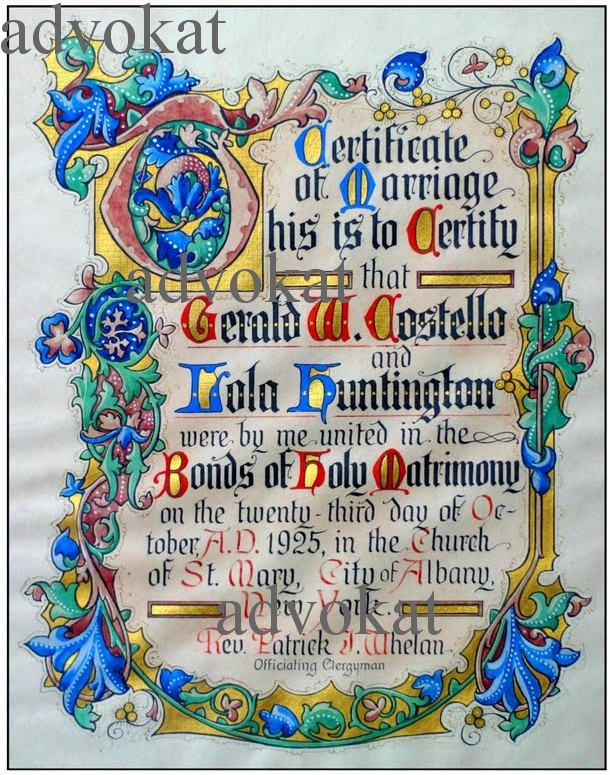 advokat
Certificate
of Marriage
This is to Certify
advokat
that
Gerald W. Costello
and
Lola Huntington
were by me united in the
Bonds of Holy Matrimony
on the twenty-third day of Oc-
tober, A.D. 1925, in the Church
of St. Mary, City of Albany,
New York.
advokat
Rev. Patrick J. Whelan
Officiating Clergyman